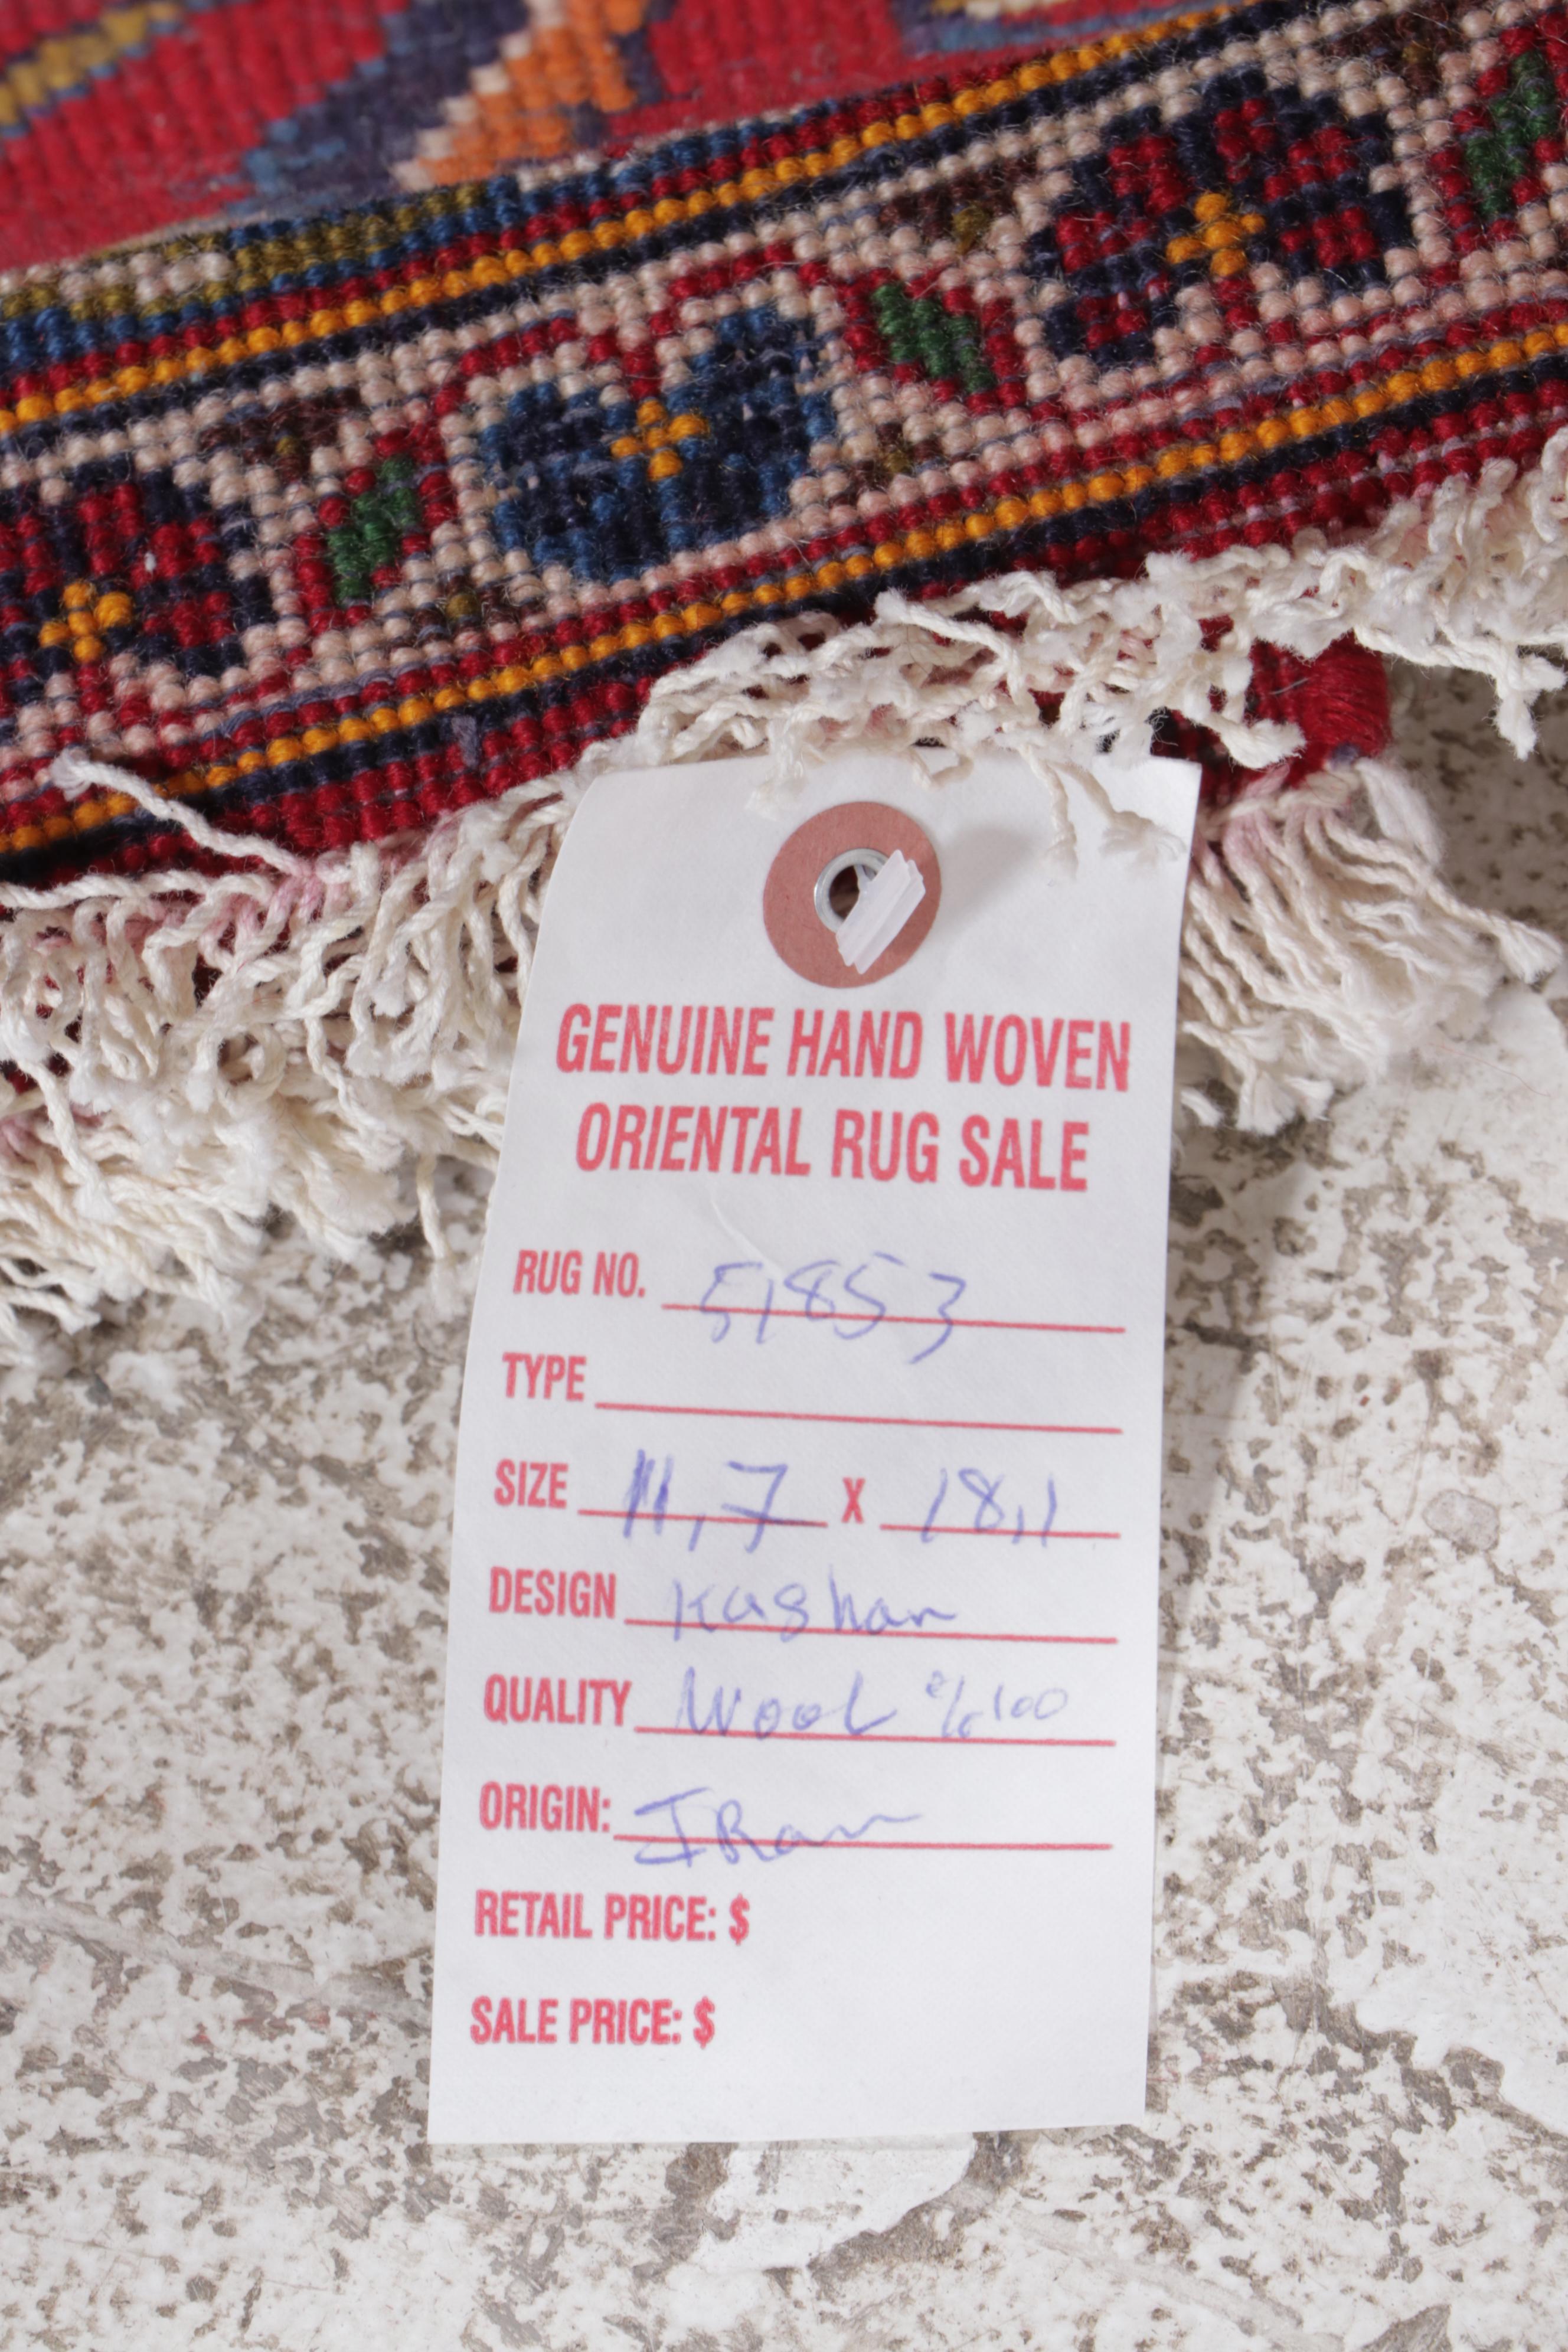 GENUINE HAND WOVEN
ORIENTAL RUG SALE
RUG NO. 51853
TYPE
SIZE 11,7 X 18,1
DESIGN Kashan
QUALITY Wool %100
ORIGIN: IRan
RETAIL PRICE: $
SALE PRICE: $